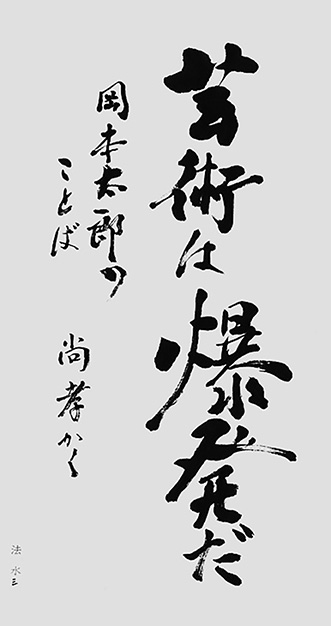 芸術は爆発だ
岡本太郎の
ことば
尚孝かく
法水三